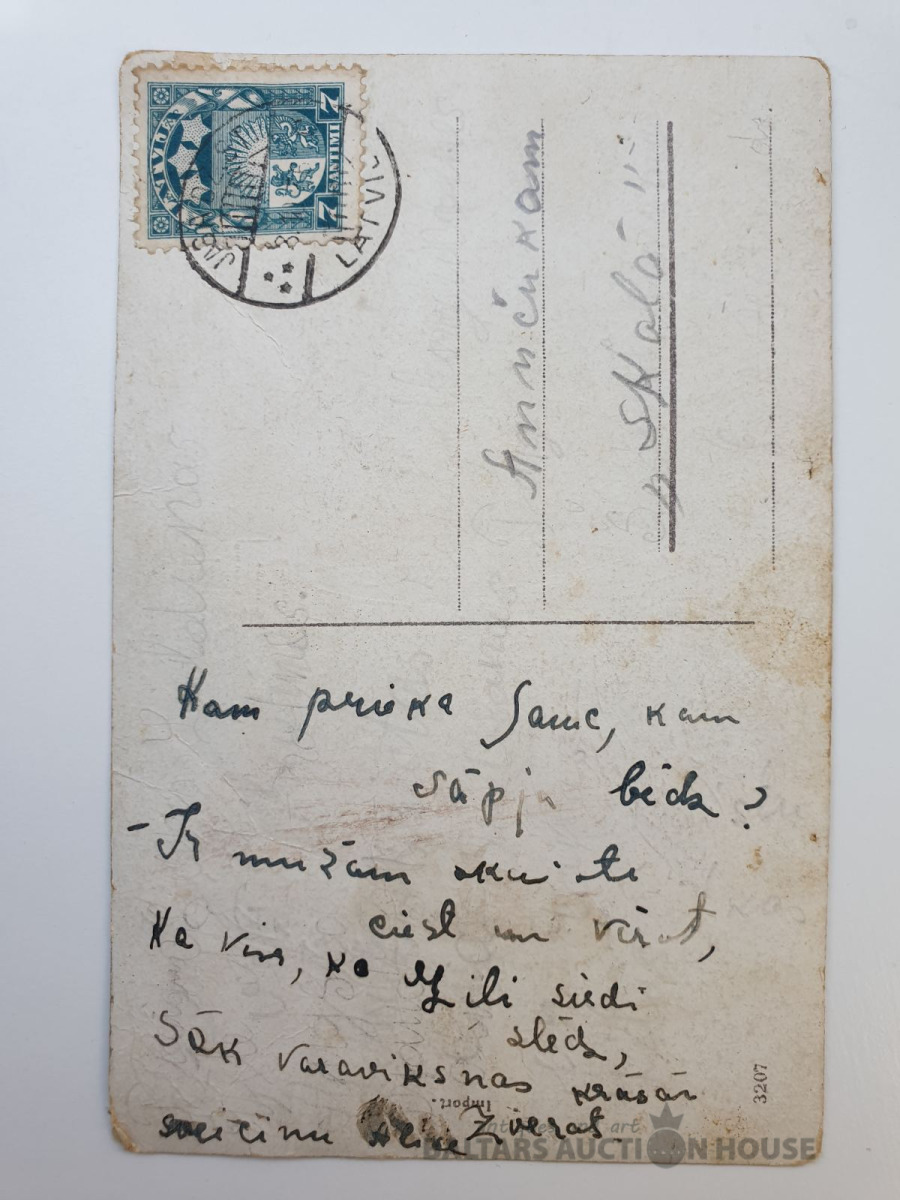 LATVIJA
7 SANTIMI 7
LATVIJ
Annčukam
Skolā
Kam prieka Jame, kam
sāpju bēdz?
– Ir mužam skaisti
ciest un vērot,
Ka viss, ko Zili siedi
slēdz,
Sāk varavīksnas krāsās
Zvērot
sveicinu
Import.
3207
BALTARS AUCTION HOUSE